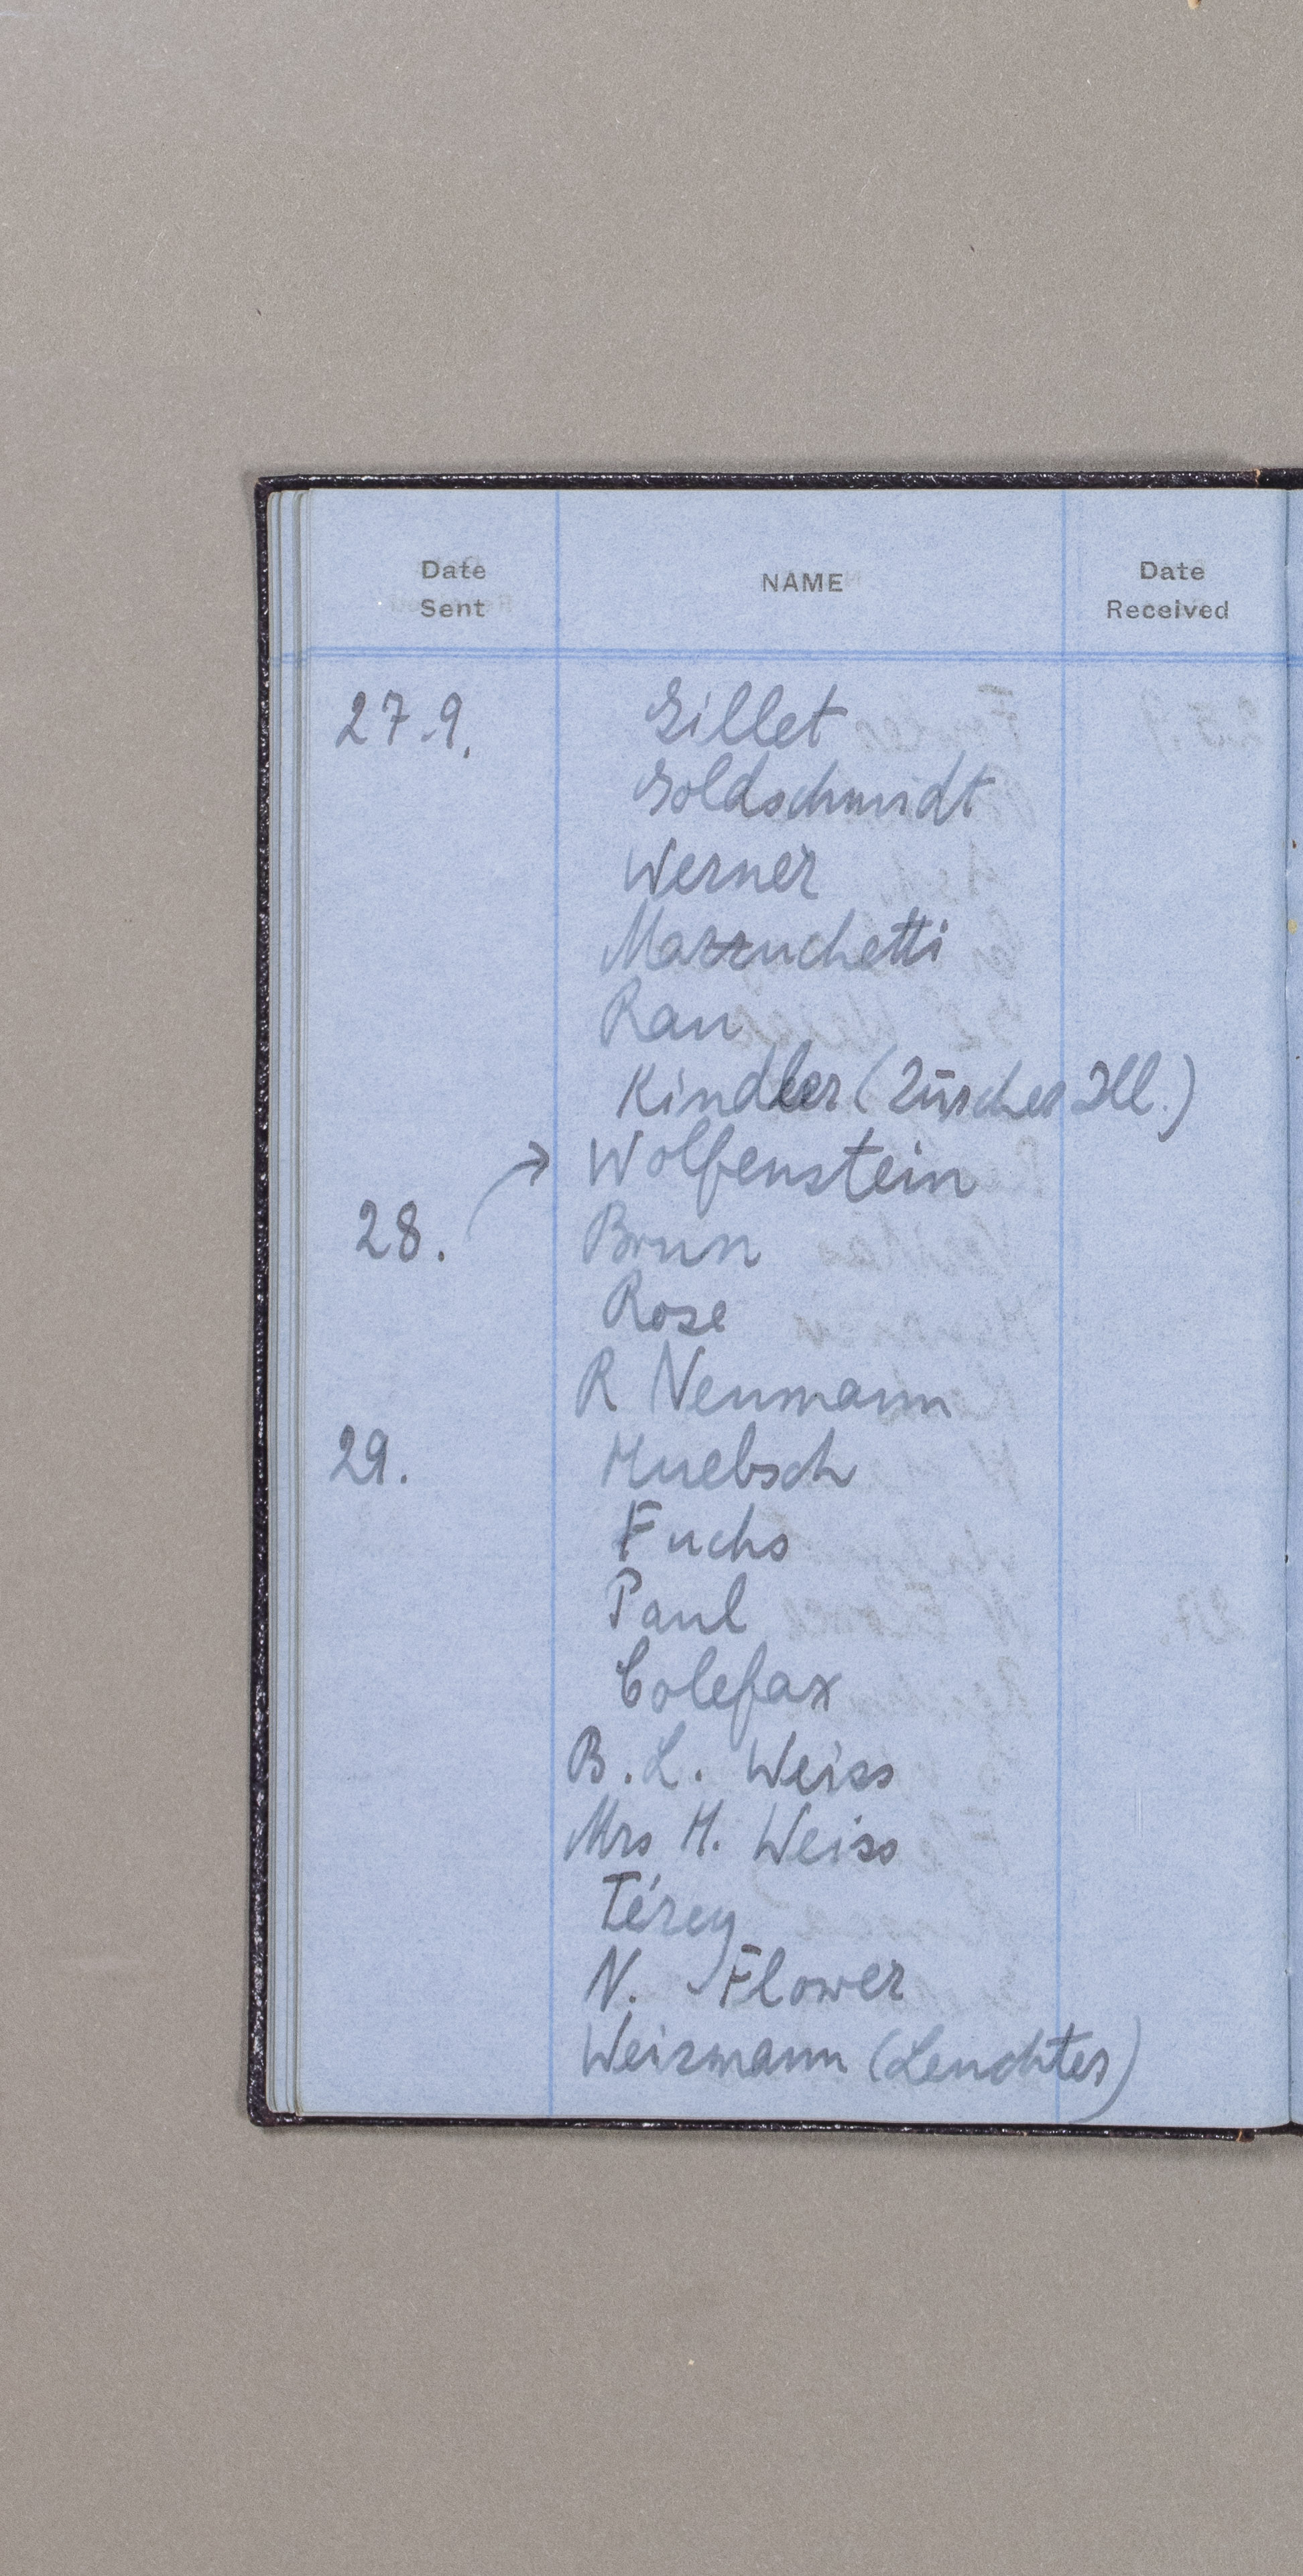 Date Sent NAME Date Received
27.9. Gillet
Goldschmidt
Werner
Mazzuchetti
Rau
Kindler (Zürcher Ill.)
→ Wolfenstein
28. Brun
Rose
R Neumann
29. Huebsch
Fuchs
Paul
Colefax
B. L. Weiss
Mrs H. Weiss
Térey
N. Flower
Weismann (Leuchter)